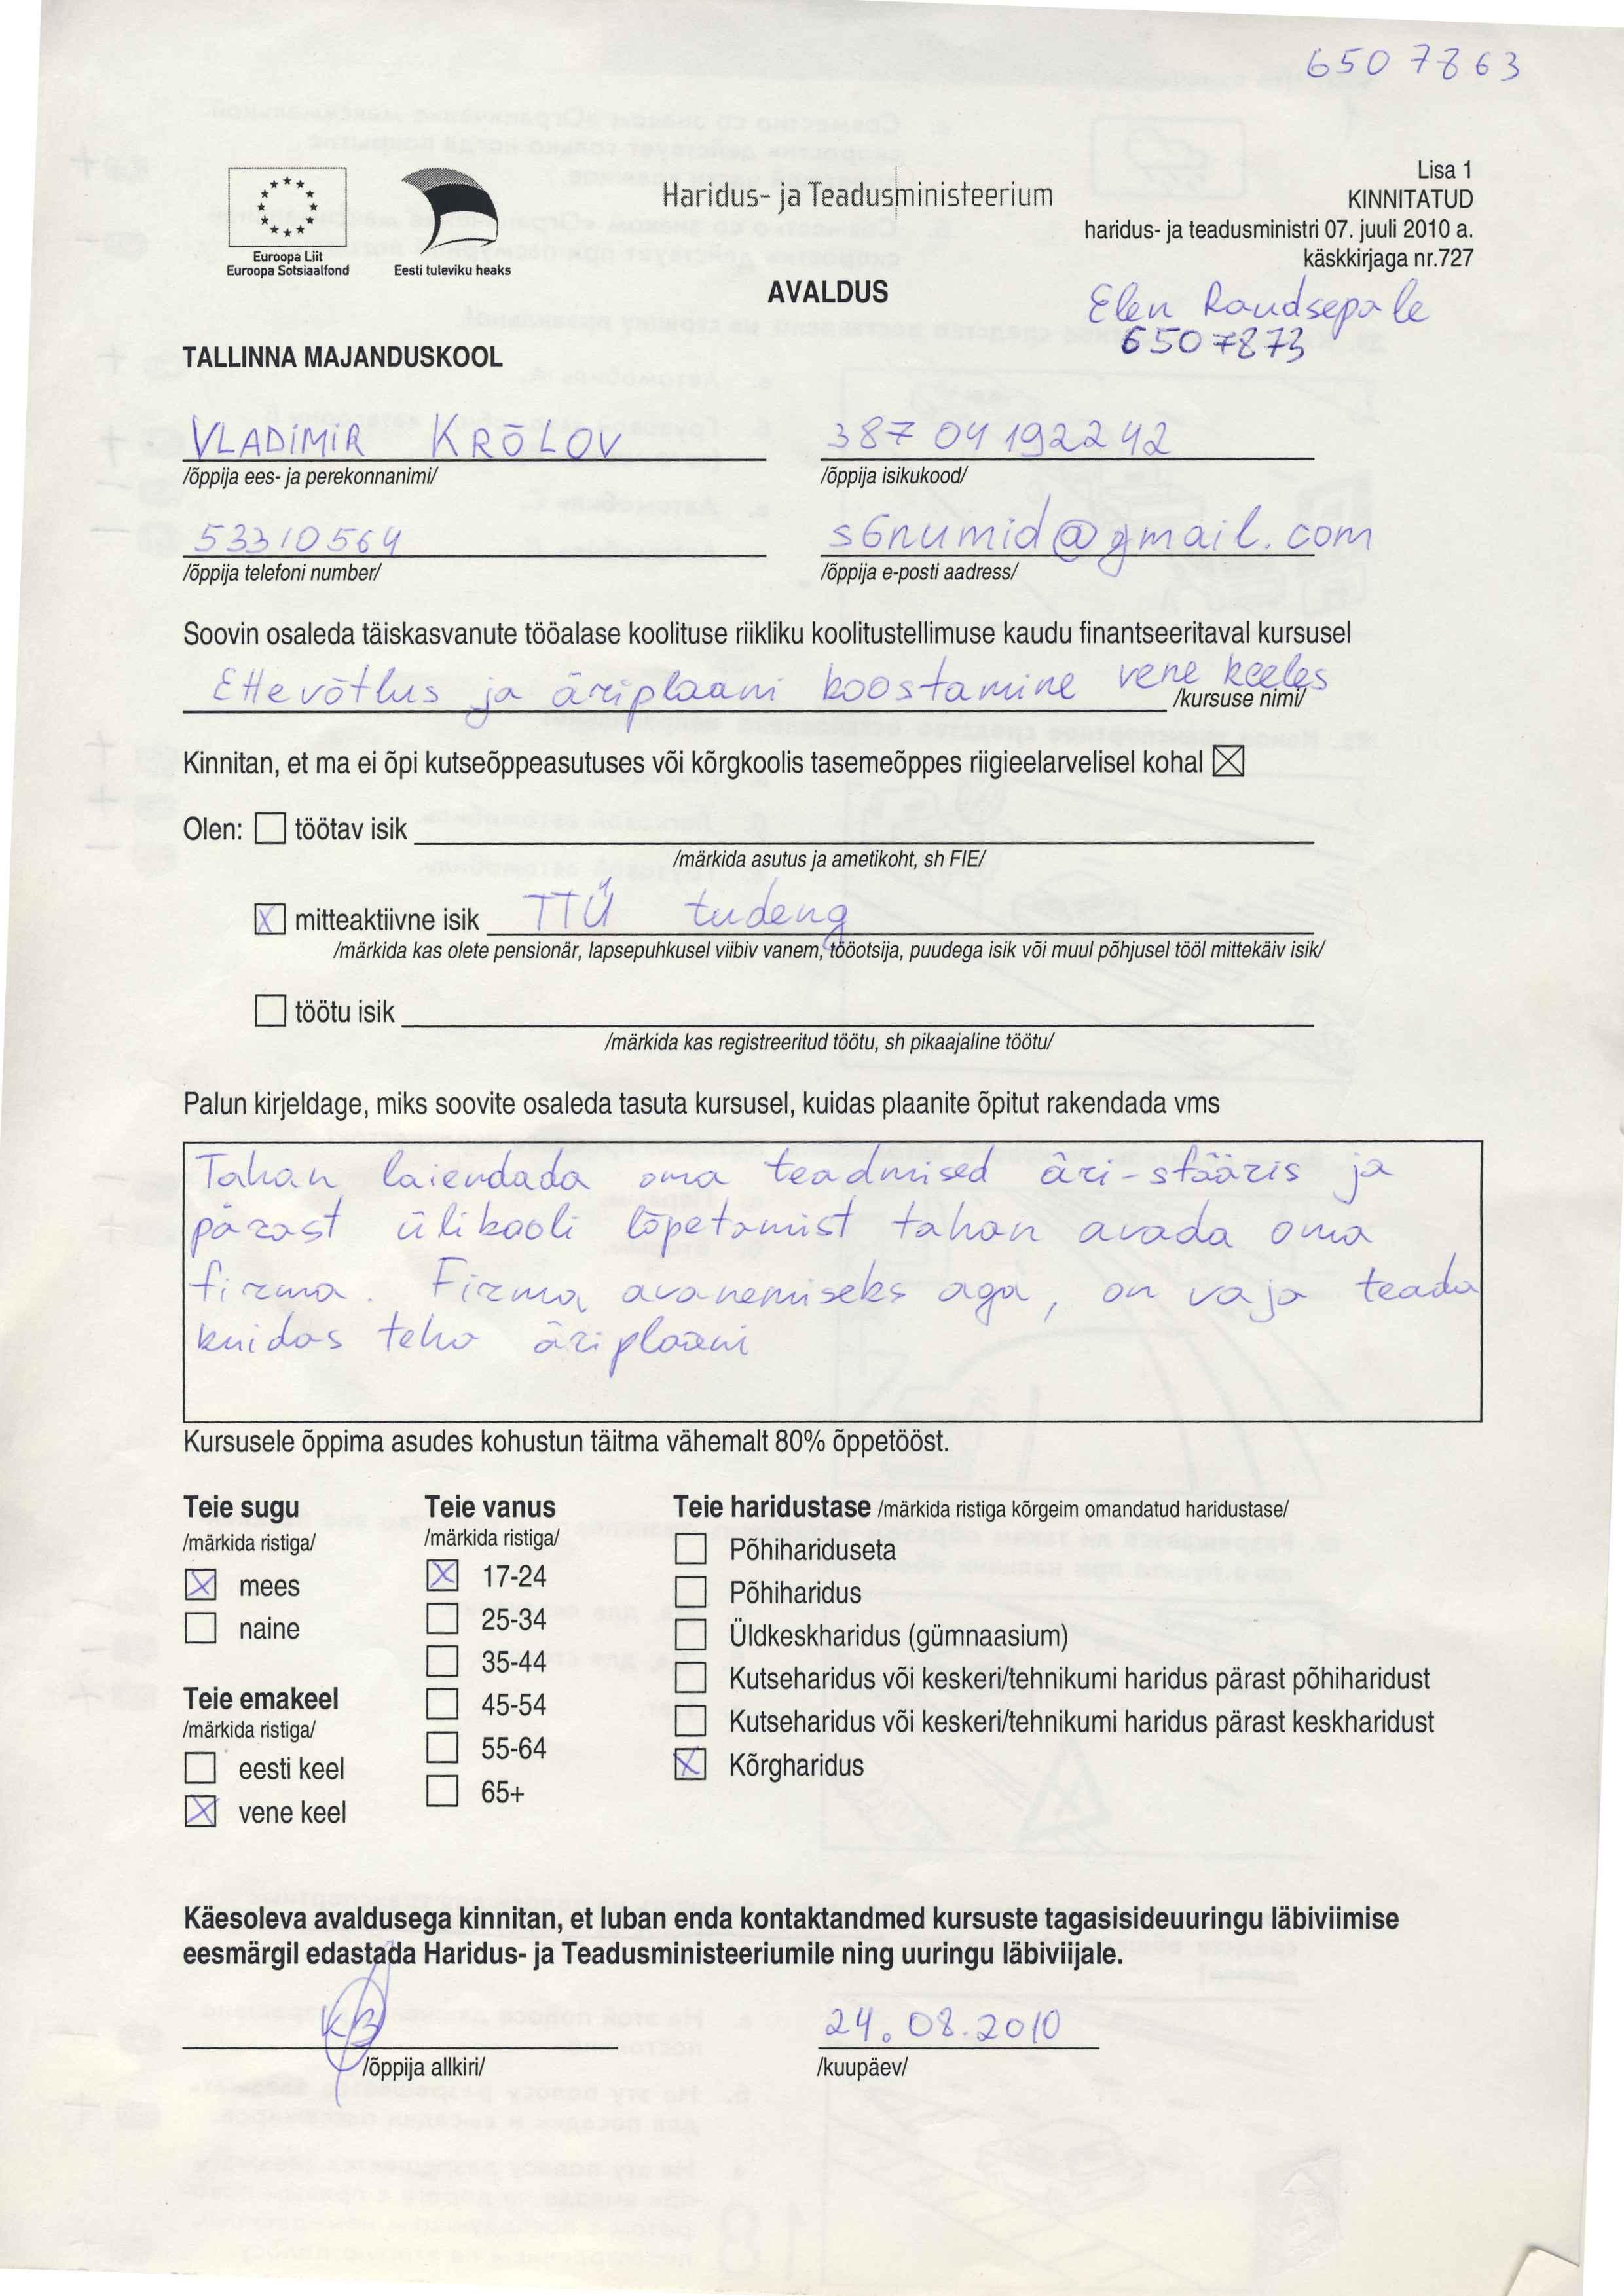 650 7863
Lisa 1
KINNITATUD
haridus- ja teadusministri 07. juuli 2010 a.
käskkirjaga nr.727
Euroopa Liit
Euroopa Sotsiaalfond
Eesti tuleviku heaks
Haridus- ja Teadusministeerium
AVALDUS
Elen Raudsepale
650 7873
TALLINNA MAJANDUSKOOL
VLADIMIR KRÕLOV
387 04 192242
/õppija ees- ja perekonnanimi/
/õppija isikukood/
53310564
s6numid@gmail.com
/õppija telefoni number/
/õppija e-posti aadress/
Soovin osaleda täiskasvanute tööalase koolituse riikliku koolitustellimuse kaudu finantseeritaval kursusel
Ettevõtlus ja äriplaani koostamine vene keeles
/kursuse nimi/
Kinnitan, et ma ei õpi kutseõppeasutuses või kõrgkoolis tasemeõppes riigieelarvelisel kohal
Olen: töötav isik
/märkida asutus ja ametikoht, sh FIE/
mitteaktiivne isik TTÜ tudeng
/märkida kas olete pensionär, lapsepuhkusel viibiv vanem, tööotsija, puudega isik või muul põhjusel tööl mittekäiv isik/
töötu isik
/märkida kas registreeritud töötu, sh pikaajaline töötu/
Palun kirjeldage, miks soovite osaleda tasuta kursusel, kuidas plaanite õpitut rakendada vms
Tahan laiendada oma teadmised äri-sfääris ja
pärast ülikooli lõpetamist tahan avada oma
firma. Firma avanemiseks aga, on vaja teada
kuidas teha äriplaani
Kursusele õppima asudes kohustun täitma vähemalt 80% õppetööst.
Teie sugu
/märkida ristiga/
mees
naine
Teie emakeel
/märkida ristiga/
eesti keel
vene keel
Teie vanus
/märkida ristiga/
17-24
25-34
35-44
45-54
55-64
65+
Teie haridustase /märkida ristiga kõrgeim omandatud haridustase/
Põhihariduseta
Põhiharidus
Üldkeskharidus (gümnaasium)
Kutseharidus või keskeri/tehnikumi haridus pärast põhiharidust
Kutseharidus või keskeri/tehnikumi haridus pärast keskharidust
Kõrgharidus
Käesoleva avaldusega kinnitan, et luban enda kontaktandmed kursuste tagasisideuuringu läbiviimise
eesmärgil edastada Haridus- ja Teadusministeeriumile ning uuringu läbiviijale.
24.08.2010
/õppija allkiri/
/kuupäev/